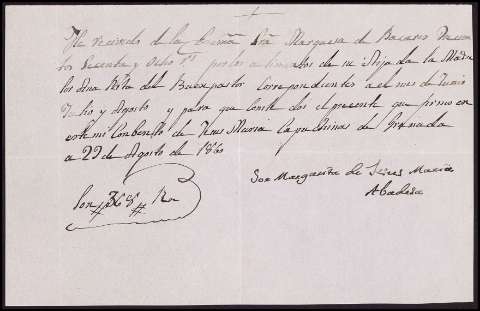 He recivido de la Exmª Srª Marquesa de
tos Sesenta y Ocho rˢ por los alimentos de su Hija la M Madre
Rita del Buen pastor Correspondientes a el mes de Junio
Julio y Agosto y para que conste doi el presente que firmo en
este mi Combento de Jesus Maria Capuchinas de Granada
a 29 de Agosto de 1860
Son 368 Rn
Sor Margarita de Jesus Maria
Abadesa